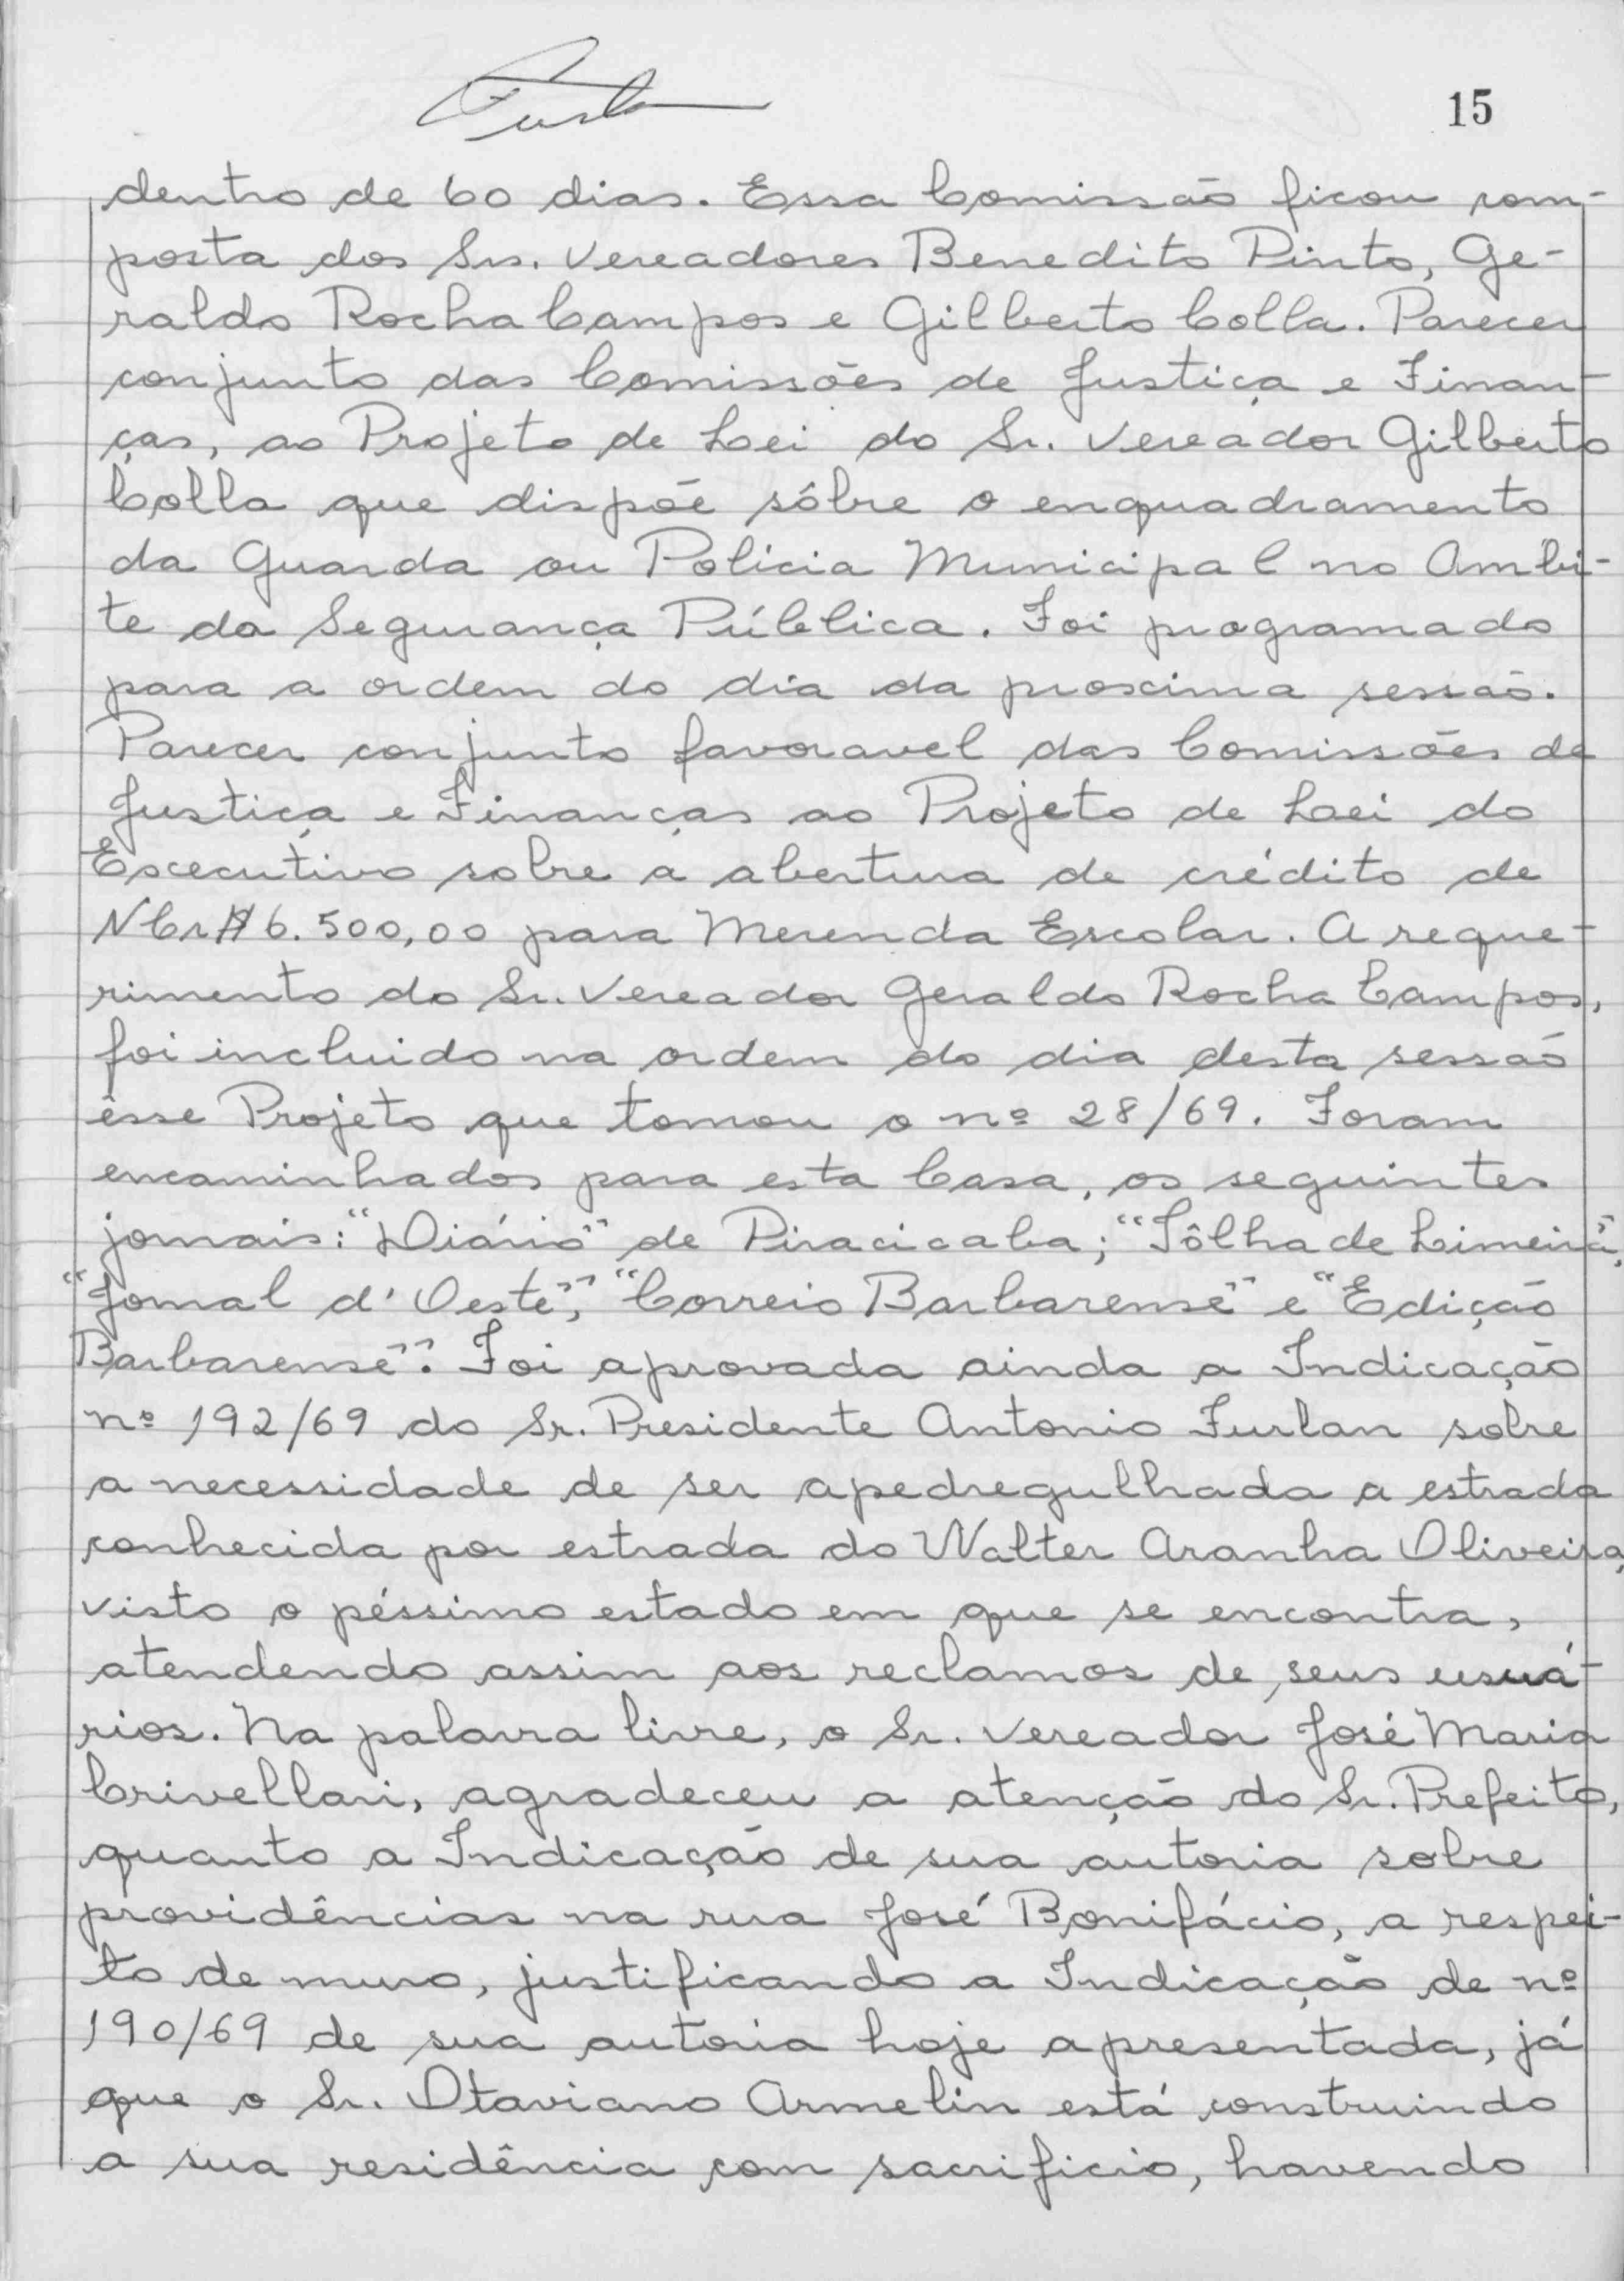 15
dentro de 60 dias. Essa Comissão ficou com-
posta dos Srs. Vereadores Benedito Pinto, Ge-
raldo Rocha Campos e Gilberto Colla. Parecer
conjunto das Comissões de Justiça e Finan-
ças, ao Projeto de Lei do Sr. Vereador Gilberto
Colla que dispõe sôbre o enquadramento
da Guarda ou Polícia Municipal no Ambi-
te da Segurança Pública. Foi programado
para a ordem do dia da proxima sessão.
Parecer conjunto favoravel das Comissões de
Justiça e Finanças ao Projeto de Lei do
Executivo sobre a abertura de crédito de
NCr$ 6.500,00 para Merenda Escolar. A reque-
rimento do Sr. Vereador Geraldo Rocha Campos,
foi incluido na ordem do dia desta sessão
êsse Projeto que tomou o nº 28/69. Foram
encaminhados para esta Casa, os seguintes
jornais: "Diário" de Piracicaba; "Fôlha de Limeira",
"Jornal d'Oeste", "Correio Barbarense" e "Edição
Barbarense". Foi aprovada ainda a Indicação
nº 192/69 do Sr. Presidente Antonio Furlan sobre
a necessidade de ser apedregulhada a estrada
conhecida por estrada do Walter Aranha Oliveira,
visto o péssimo estado em que se encontra,
atendendo assim aos reclamos de seus usuá-
rios. Na palavra livre, o Sr. Vereador José Maria
Crivellari, agradeceu a atenção do Sr. Prefeito,
quanto a Indicação de sua autoria sobre
providências na rua José Bonifácio, a respei-
to de muro, justificando a Indicação de nº
190/69 de sua autoria hoje apresentada, já
que o Sr. Otaviano Armelin está construindo
a sua residência com sacrificio, havendo